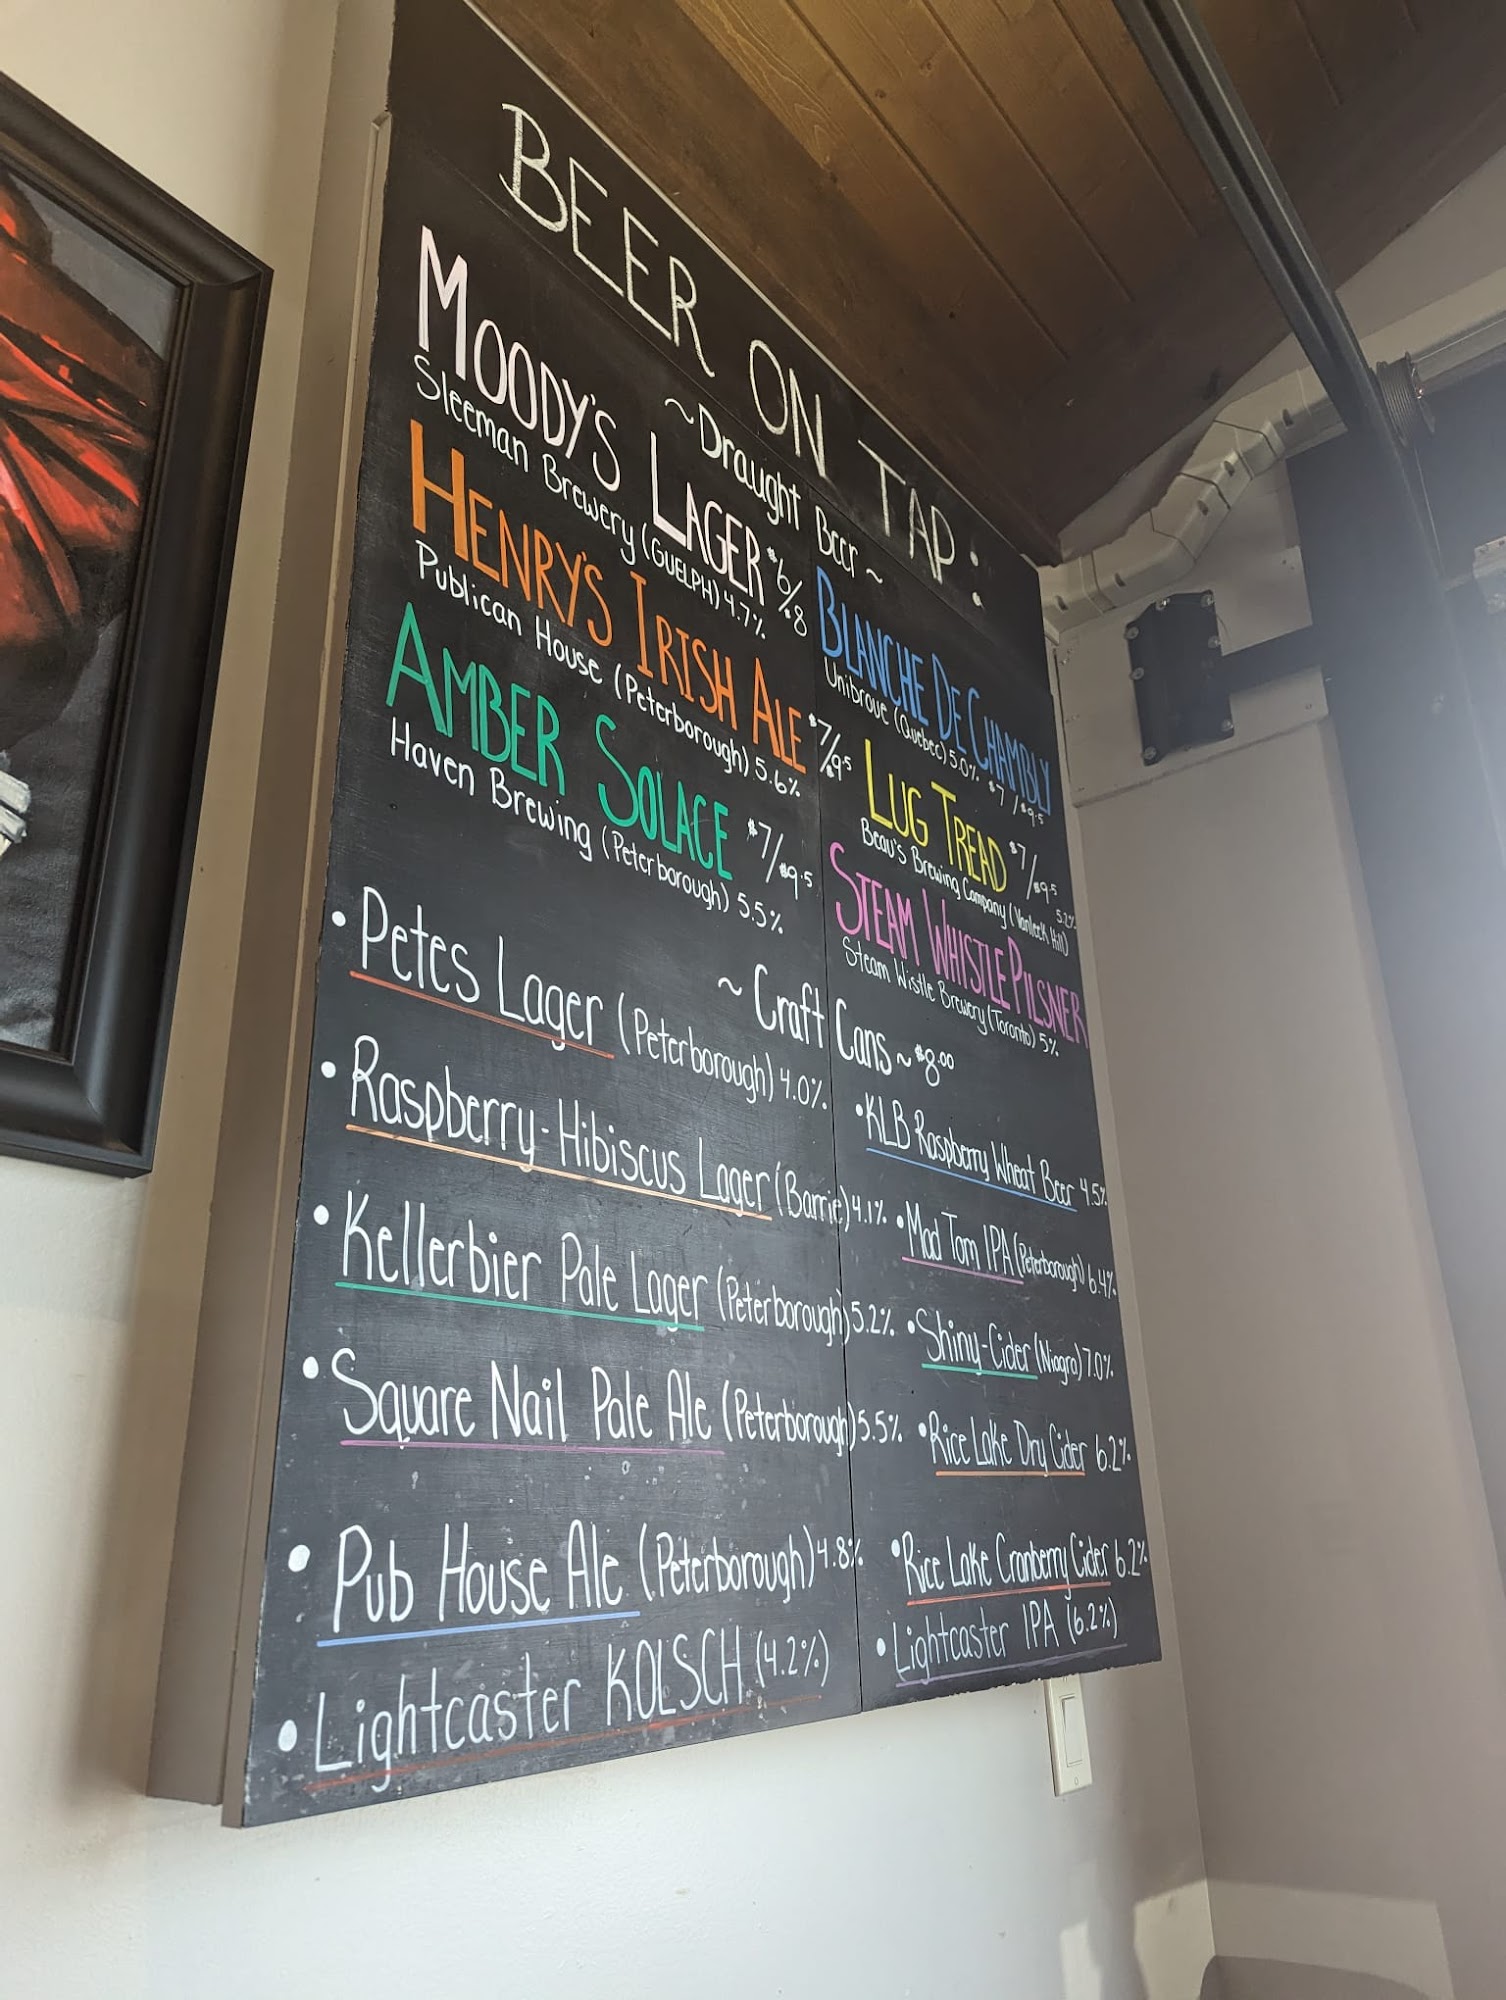 BEER ON TAP:
~Draught Beer~
MOODY'S LAGER $6/$8
Sleeman Brewery (GUELPH) 4.7%
HENRY'S IRISH ALE $7/$9.5
Publican House (Peterborough) 5.6%
AMBER SOLACE $7/$9.5
Haven Brewing (Peterborough) 5.5%
BLANCHE DE CHAMBLY
Unibroue (Quebec) 5.0% $7/$9.5
LUG TREAD $7/$9.5
Beau's Brewing Company (Vankleek Hill) 5.2%
STEAM WHISTLE PILSNER
Steam Wistle Brewery (Toronto) 5%
~Craft Cans~ $8.00
•Petes Lager (Peterborough) 4.0%
•Raspberry-Hibiscus Lager (Barrie) 4.1%
•Kellerbier Pale Lager (Peterborough) 5.2%
•Square Nail Pale Ale (Peterborough) 5.5%
•Pub House Ale (Peterborough) 4.8%
•Lightcaster KOLSCH (4.2%)
•KLB Raspberry Wheat Beer 4.5%
•Mad Tom IPA (Peterborough) 6.4%
•Shiny-Cider (Niagra) 7.0%
•Rice Lake Dry Cider 6.2%
•Rice Lake Cranberry Cider 6.2%
•Lightcaster IPA (6.2%)